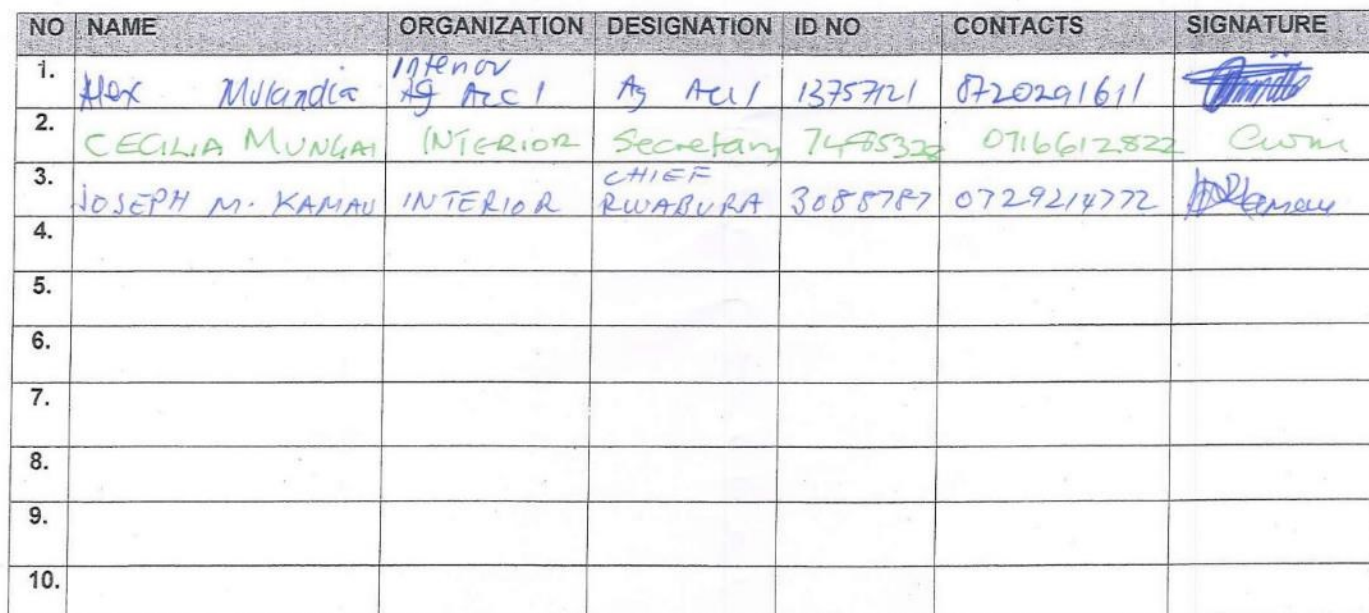 NO NAME ORGANIZATION DESIGNATION ID NO CONTACTS SIGNATURE
1. Alex Mulandia Interior Ag Acc 1 Ag Acc 1 13757121 0720291611
2. CECILIA MUNGAI INTERIOR Secretary 0716612822 Cwm
3. JOSEPH M. KAMAU INTERIOR CHIEF RWABURA 3088787 0729214772 Kamau
4.
5.
6.
7.
8.
9.
10.